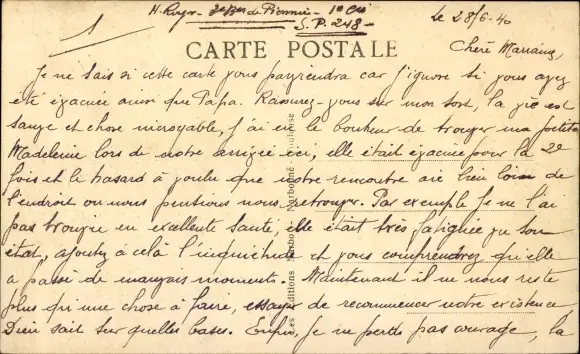 1
H. Royer - 3e Bon de Pionniers - 1e Cie
S.P. 248 -
le 28/6-40
CARTE POSTALE
Chère Marraine,
Je ne sais si cette carte vous parviendra car j'ignore si vous avez
été évacuée ainsi que Papa. Rassurez-vous sur mon sort, la vie est
sauve et chose incroyable, j'ai eu le bonheur de trouver ma petite
Madeleine lors de notre arrivée ici, elle était évacuée pour la 2e
fois et le hasard a voulu que notre rencontre aie lieu loin de
l'endroit ou nous pensions nous retrouver. Par exemple je ne l'ai
pas trouvée en excellente santé, elle était très fatiguée vu son
état, ajoutez à cela l'inquiétude et vous comprendrez qu'elle
a passé de mauvais moments. Maintenant il ne nous reste
plus qu'une chose à faire, essayer de recommencer notre existence
Dieu sait sur quelles bases. Enfin, je ne perds pas courage, la
Les Editions Narbo - Narbonne